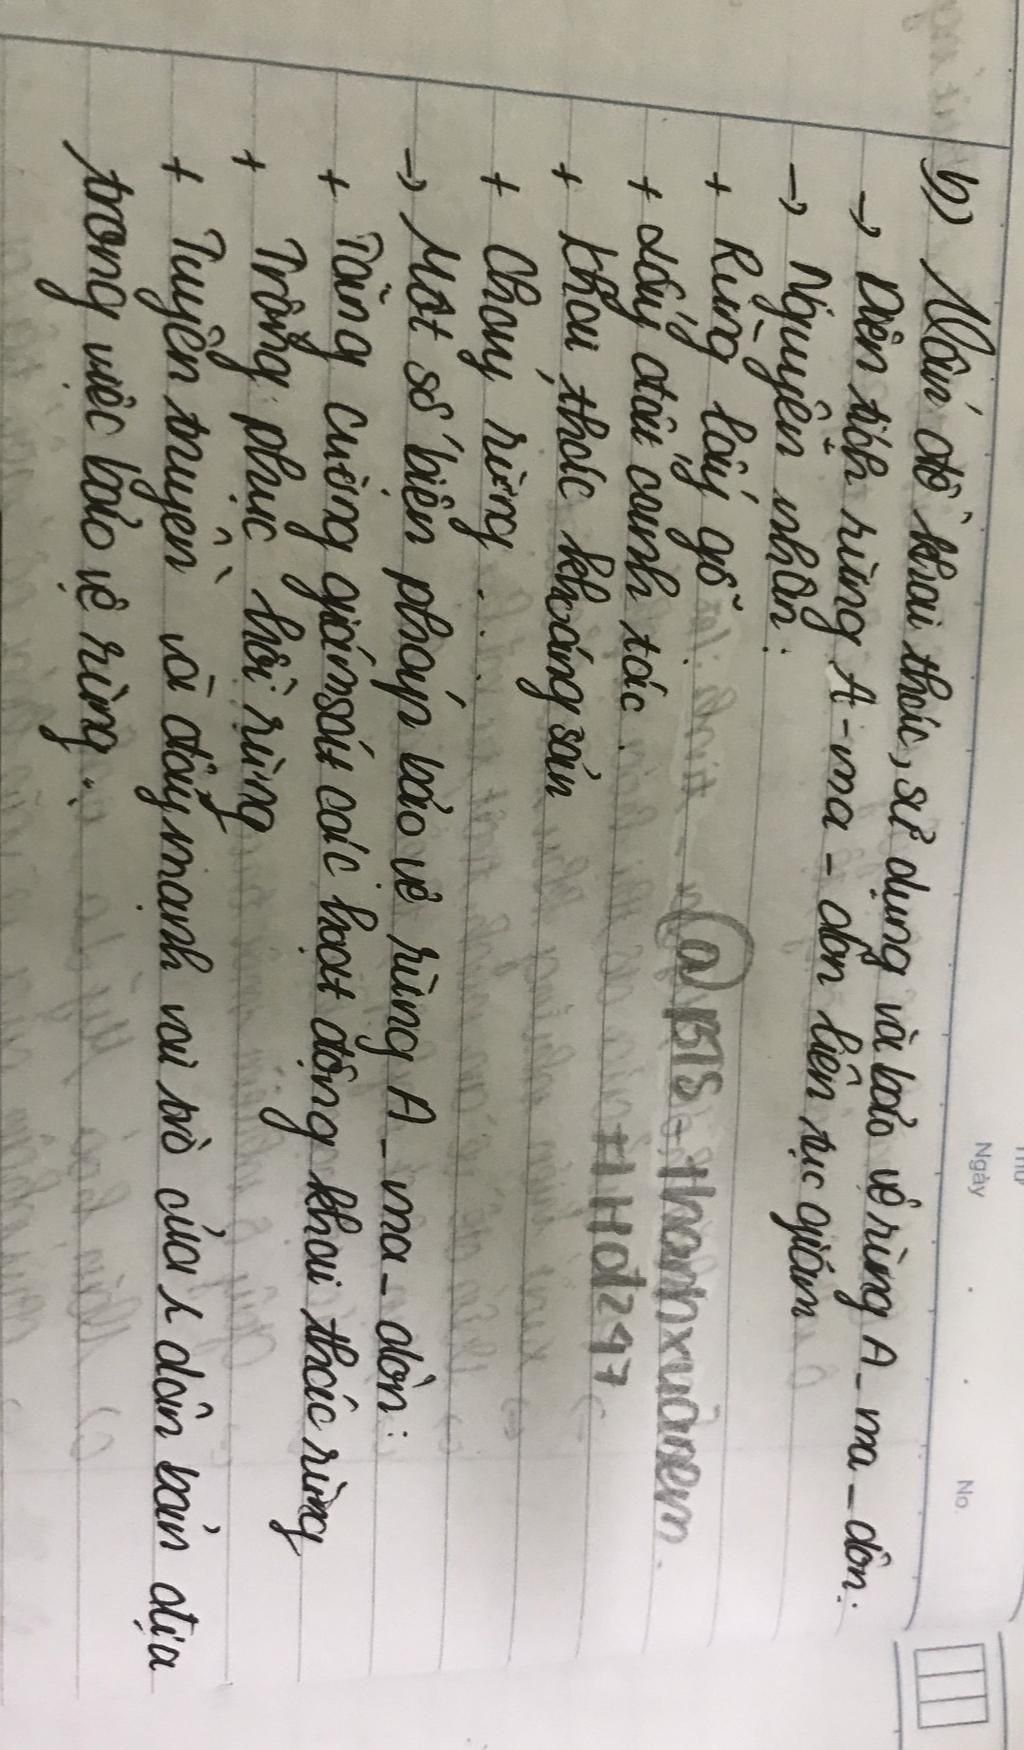 b) Vấn đề khai thác, sử dụng và bảo vệ rừng A-ma-dôn:
→ Diện tích rừng A-ma-dôn liên tục giảm
→ Nguyên nhân:
+ Rừng lấy gỗ
+ Lấy đất canh tác.
+ Khai thác khoáng sản
+ Cháy rừng...
→ Một số biện pháp bảo vệ rừng A-ma-dôn:
+ Tăng cường giám sát các hoạt động khai thác rừng
+ Trồng phục hồi rừng
+ Tuyên truyền và đẩy mạnh vai trò của dân bản địa
trong việc bảo vệ rừng.
@BTS_thanhxuânem
HHd247
Thứ
Ngày
No.